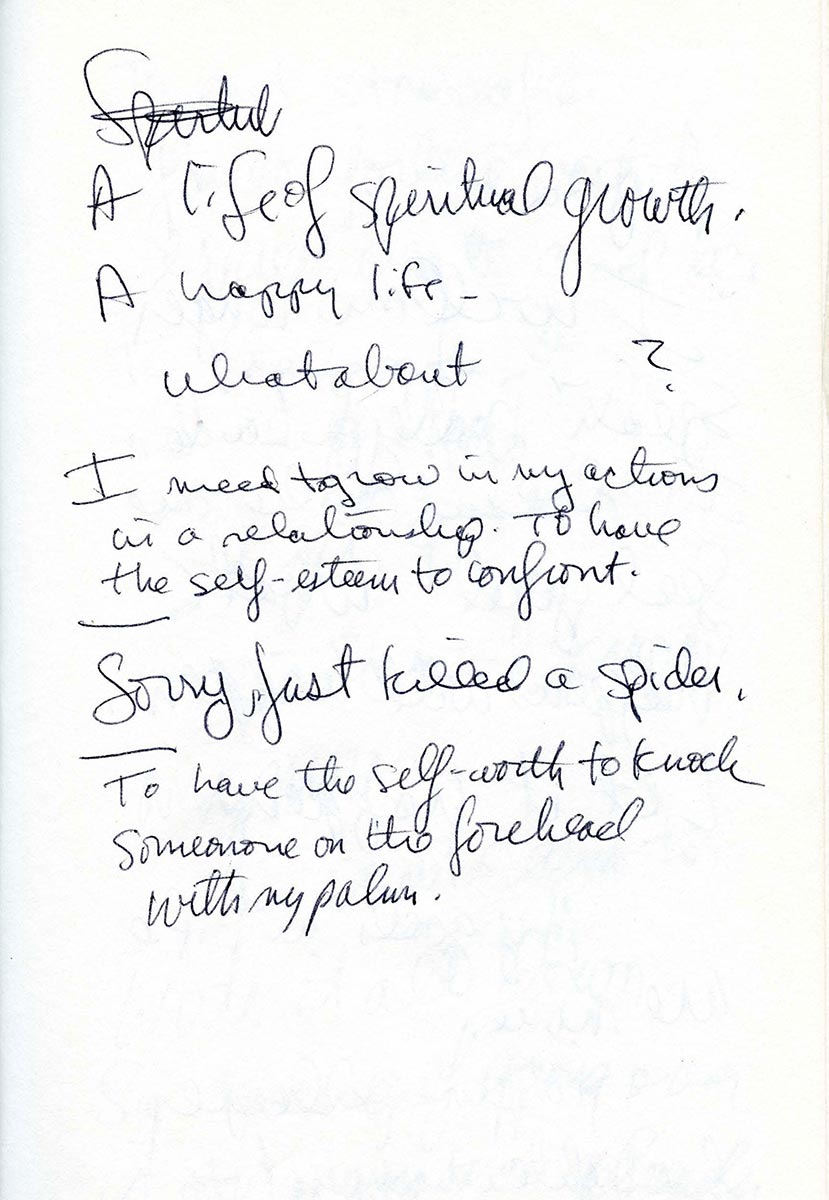 A life of spiritual growth.
A happy life -
what about ?
I need to grow in my actions
in a relationship. To have
the self-esteem to confront.
Sorry, just killed a spider.
To have the self-worth to knock
someonone on the forehead
with my palm.